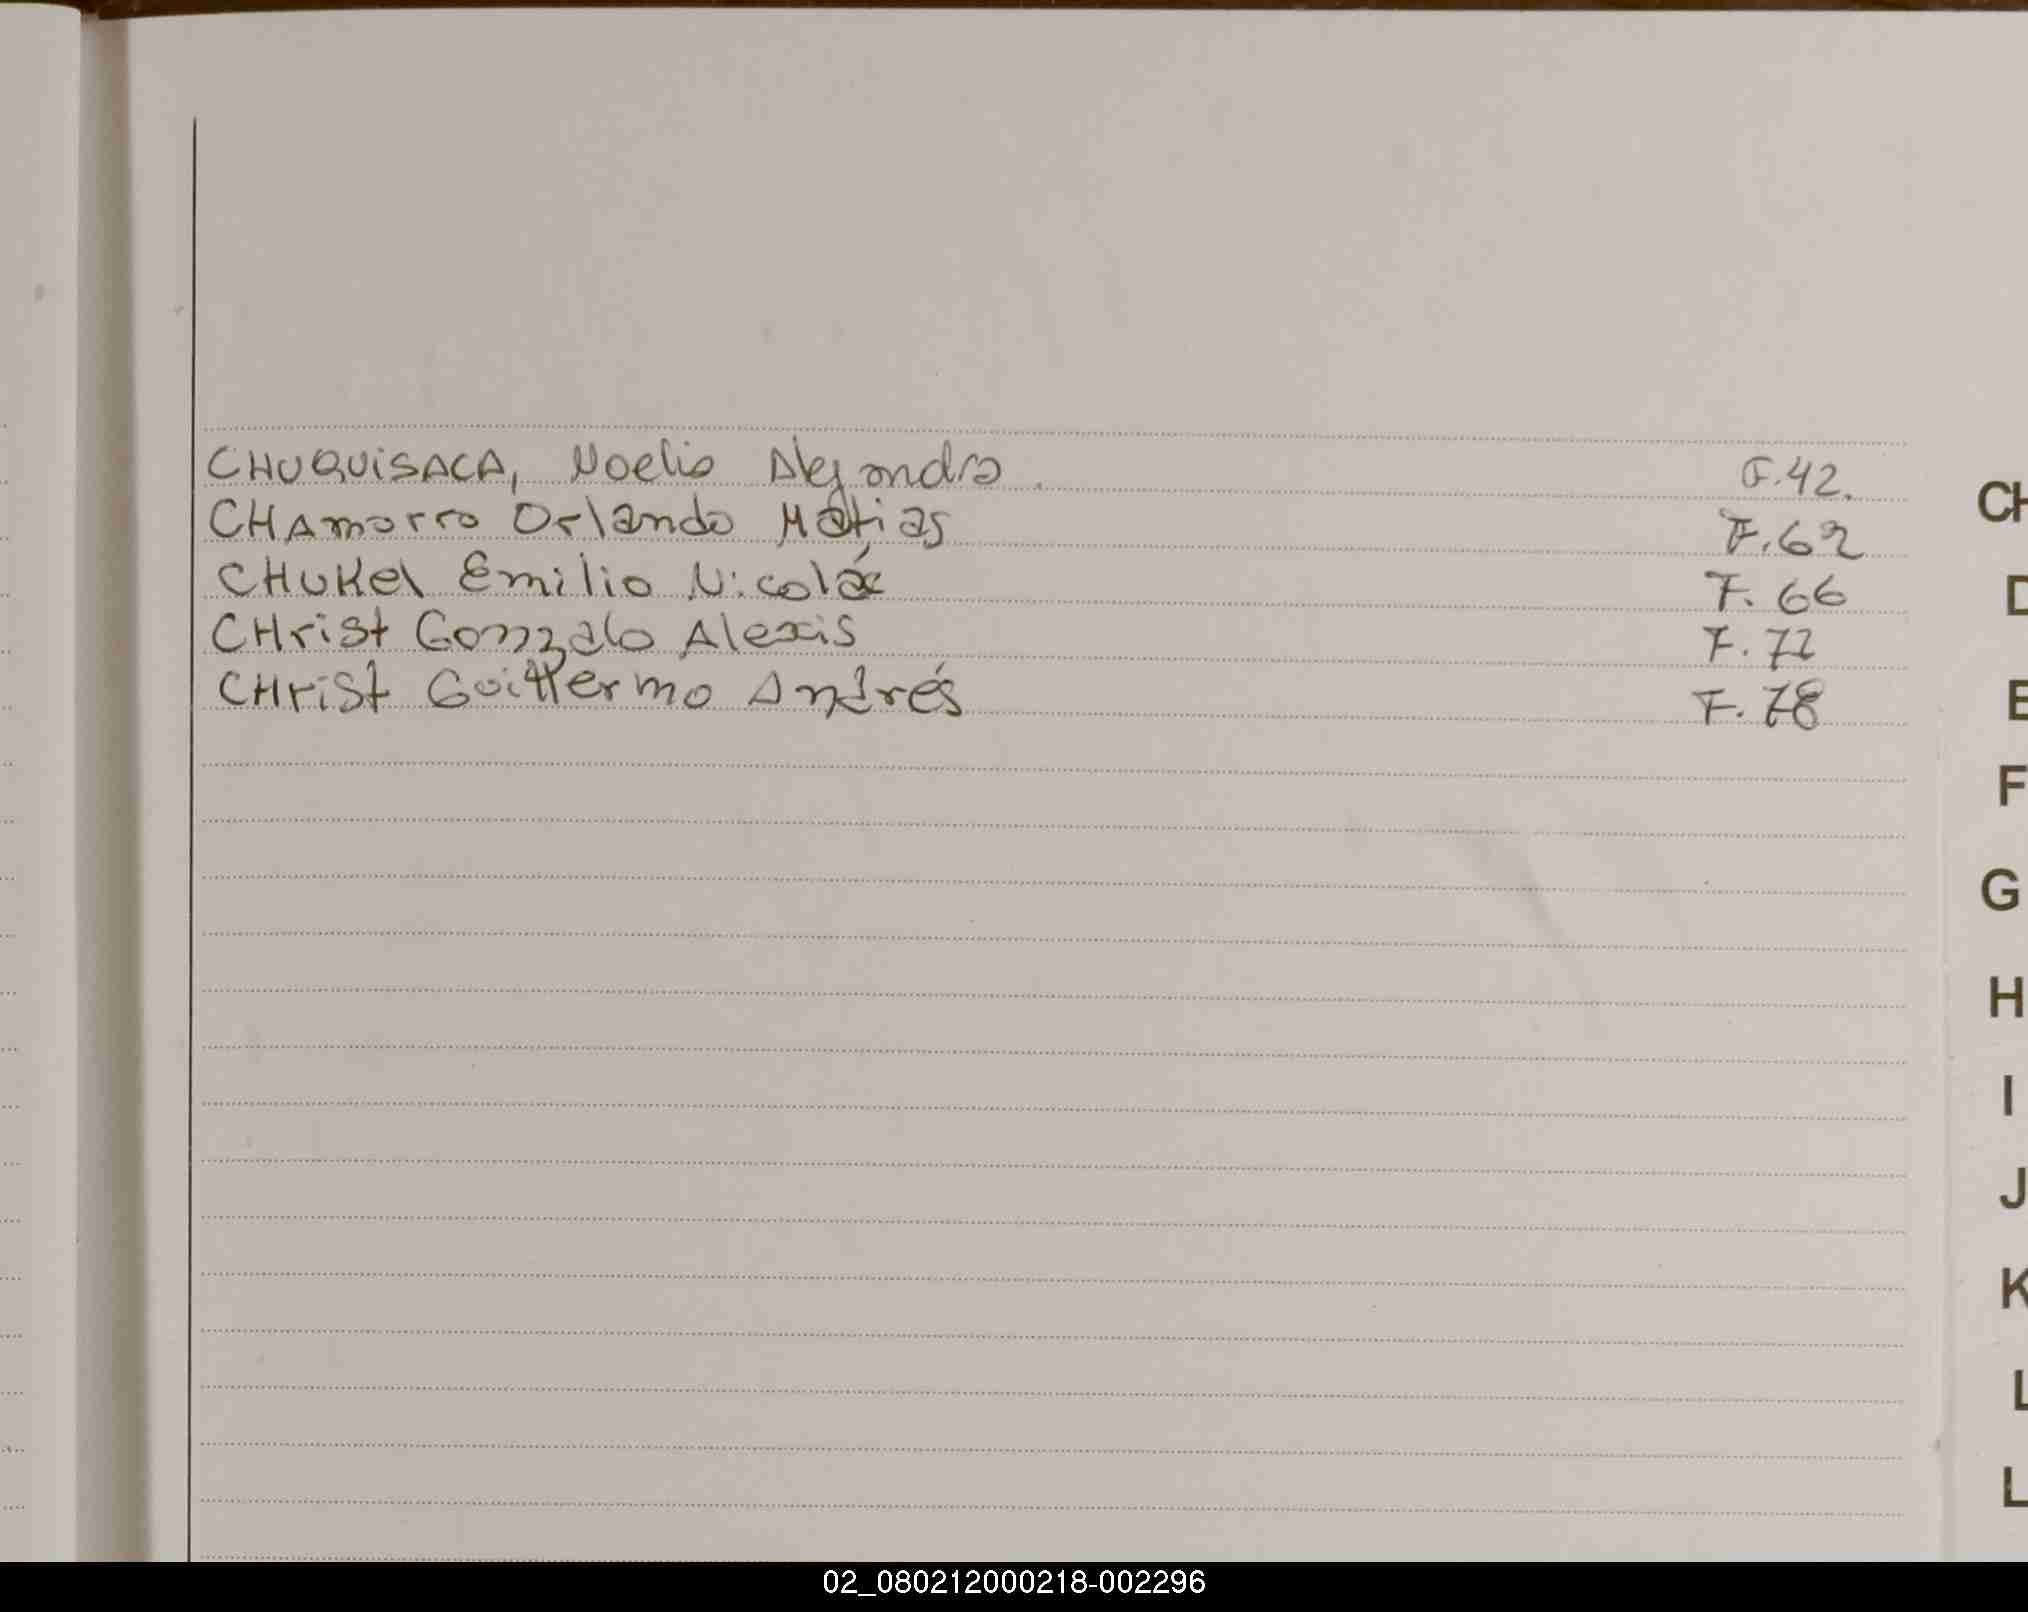 CHUQUISACA, Noelia Alejandra. F.42.
CHAmorro Orlando Matias F.62
CHUKel Emilio Nicolás F. 66
CHrist Gonzalo Alexis F. 77
CHrist Guillermo Andrés F. 78
CH
D
E
F
G
H
I
J
K
L
L
02_080212000218-002296